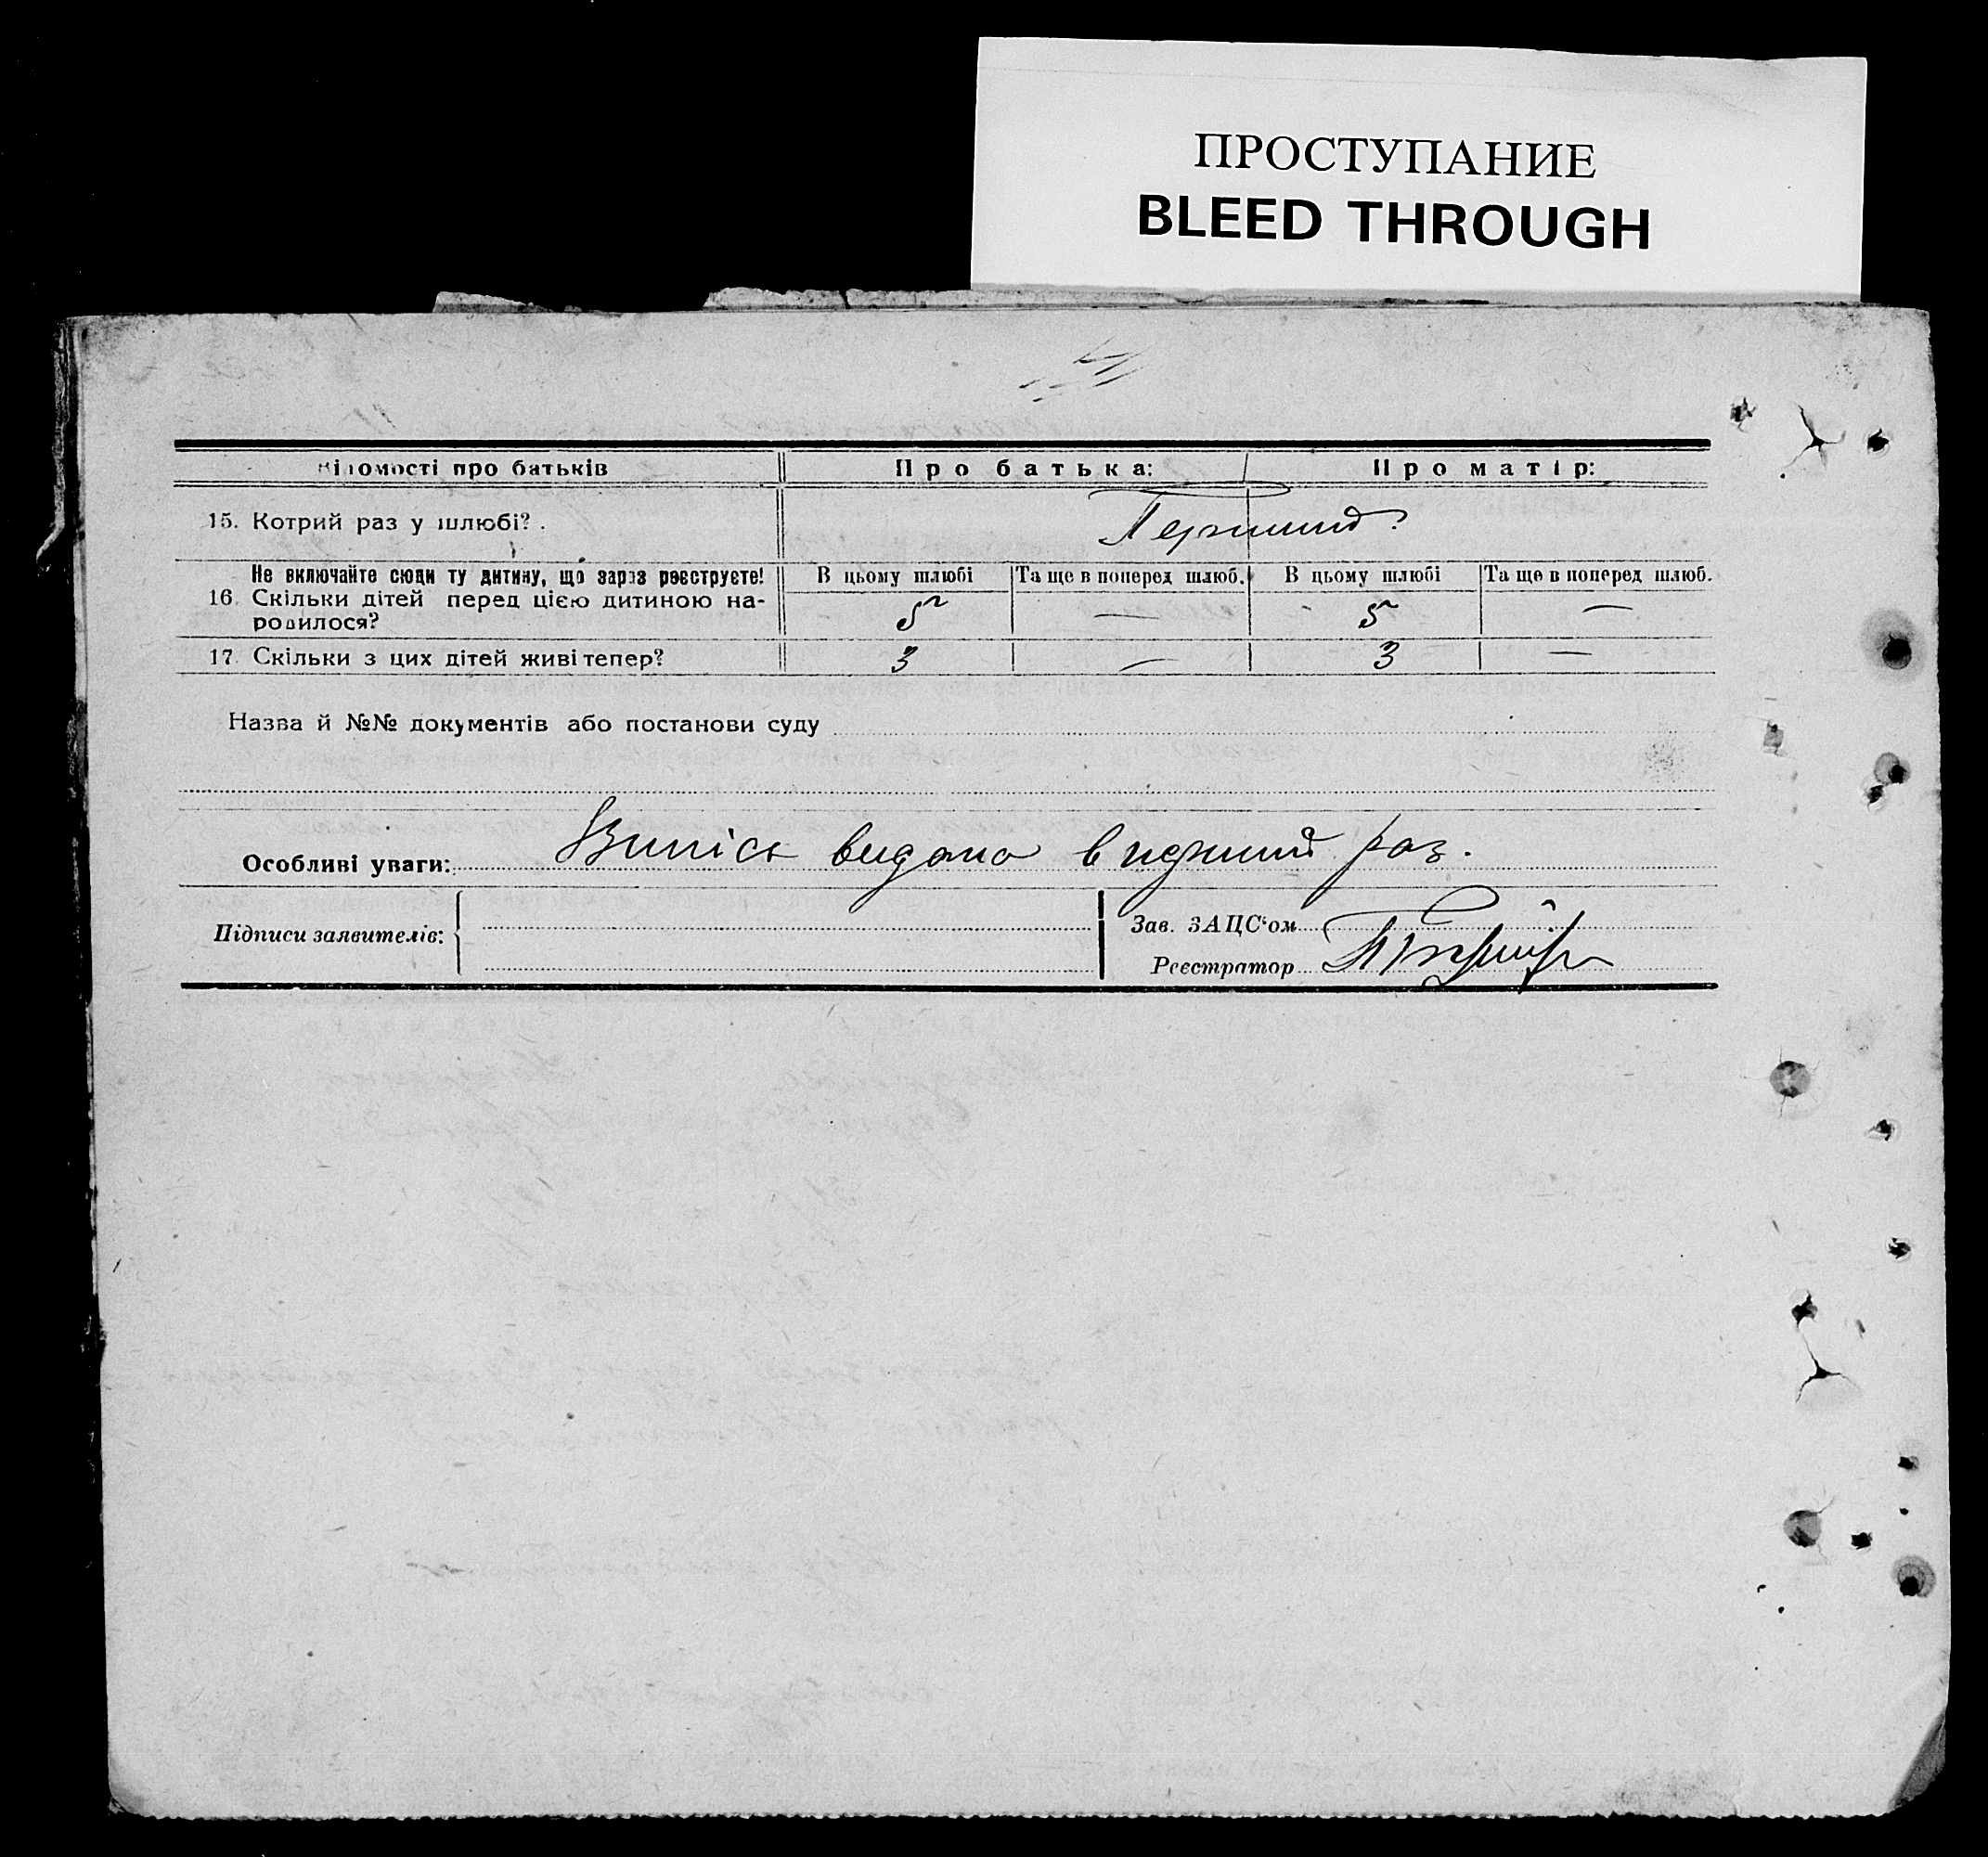 ПРОСТУПАНИЕ
BLEED THROUGH
Відомості про батьків Про батька: Про матір:
15. Котрий раз у шлюбі? . Перший
Не включайте сюди ту дитину, що зараз реєструєте! В цьому шлюбі Та ще в поперед шлюб. В цьому шлюбі Та ще в поперед шлюб.
16. Скільки дітей перед цією дитиною на-
родилося? 5 — 5 —
17. Скільки з цих дітей живі тепер? 3 — 3 —
Назва й №№ документів або постанови суду
Особливі уваги: Випісь видано в перший раз.
Підписи заявителів: Зав. ЗАЦС'ом
Реєстратор